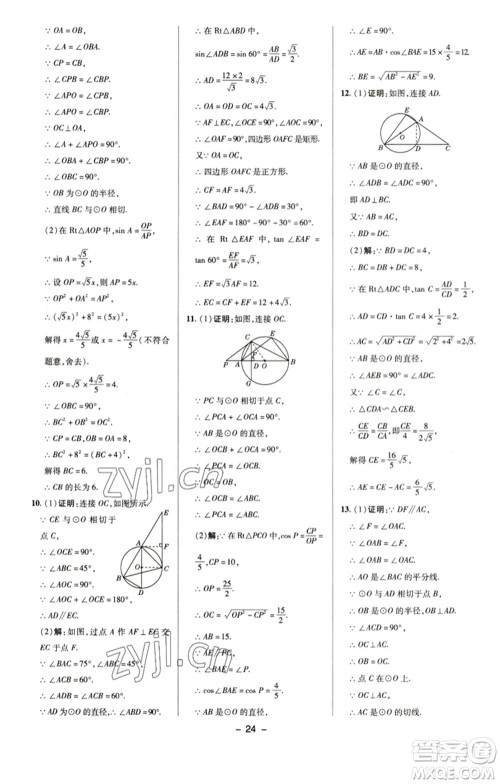 ∵ OA = OB,
∴ ∠A = ∠OBA.
∵ CP = CB,
∴ ∠CPB = ∠CBP.
∵ ∠APO = ∠CPB,
∴ ∠APO = ∠CBP.
∵ OC⊥OA,
∴ ∠A + ∠APO = 90°,
∴ ∠OBA + ∠CBP = 90°,
∴ ∠OBC = 90°.
∵ OB 为⊙O 的半径,
∴ 直线 BC 与⊙O 相切.
(2)在 Rt△AOP 中,sin A = OP/AP,
∵ sin A = √5/5,
∴ 设 OP = √5x,则 AP = 5x.
∵ OP² + OA² = AP²,
∴ (√5x)² + 8² = (5x)²,
解得 x = 4√5/5 或 x = -4√5/5(不符合
题意,舍去).
∴ OP = √5 × 4√5/5 = 4.
∵ ∠OBC = 90°,
∴ BC² + OB² = OC²,
∴ BC² + 8² = (BC + 4)²,
解得 BC = 6.
∴ CB 的长为 6.
10. (1)证明:连接 OC, 如图所示.
∵ CE 与⊙O 相切于
点 C,
∴ ∠OCE = 90°.
∵ ∠ABC = 45°,
∴ ∠AOC = 90°.
∵ ∠AOC + ∠OCE = 180°,
∴ AD∥EC.
(2)解:如图,过点 A 作 AF⊥EC 交
EC 于点 F.
∵ ∠BAC = 75°,∠ABC = 45°,
∴ ∠ACB = 60°,
∴ ∠D = ∠ACB = 60°.
∵ AD 为⊙O 的直径,
∴ ∠ABD = 90°.
在 Rt△ABD 中,
sin∠ADB = sin 60° = AB/AD = √3/2,
∴ AD = 12×2/√3 = 8√3,
∴ OA = OC = 4√3.
∵ AF⊥EC,∠OCE = 90°,∠AOC = 90°,
∴ 四边形 OAFC 是矩形.
又∵ OA = OC,
∴ 四边形 OAFC 是正方形.
∴ CF = AF = 4√3.
∵ ∠BAD = 90° - ∠D = 30°,
∴ ∠EAF = 180° - 90° - 30° = 60°.
∵ 在 Rt△AFE 中,tan∠EAF =
tan 60° = EF/AF = √3,
∴ EF = √3AF = 12.
∴ CE = CF + EF = 12 + 4√3.
11. (1)证明:如图,连接 OC.
∵ PC 与⊙O 相切于点 C,
∴ ∠PCA + ∠OCA = 90°.
∵ AB 是⊙O 的直径,
∴ ∠PCA = ∠ABC.
(2)解:在 Rt△PCO 中,cos P = CP/OP =
4/5,CP = 10,
∴ OP = 25/2,
∴ OC = √(OP² - CP²) = 15/2,
∴ AB = 15.
∵ AE∥PC,
∴ ∠P = ∠BAE,
∴ cos∠BAE = cos P = 4/5.
∵ AB 是⊙O 的直径,
∴ ∠E = 90°,
∴ AE = AB · cos∠BAE = 15 × 4/5 = 12.
∴ BE = √(AB² - AE²) = 9.
12. (1)证明:如图,连接 AD.
∵ AB 是⊙O 的直径,
∴ ∠ADB = ∠ADC = 90°.
又∵ AB = AC,
∴ BD = CD.
(2)解:∵ BD = DC = 4,
∴ BC = BD + DC = 8.
∵ 在 Rt△ADC 中,tan C = AD/CD = 1/2,
∴ AD = 2.
∴ AC = √(AD² + CD²) = √(2² + 4²) = 2√5.
∵ AB 是⊙O 的直径,
∴ ∠AEB = 90°,
又∵ ∠C = ∠C,
∴ △CDA∽△CEB,
∴ CE/CD = BC/AC,即 CE/4 = 8/2√5,
解得 CE = 16/5 √5.
13. (1)证明:∵ DF∥AC,
∴ ∠F = ∠OAC.
∵ ∠OAB = ∠F,
∴ ∠OAB = ∠OAC,
∴ AO 是∠BAC 的平分线.
∵ OA = OB,
∴ ∠OAB = ∠OBA,
∴ ∠OBA = ∠OAC,
又∵ OC⊥AC,
∴ OC 是⊙O 的半径,
∴ AC 是⊙O 的切线.
- 24 -
zyjl.cn
zyjl.cn
答案圈
MXQE.COM